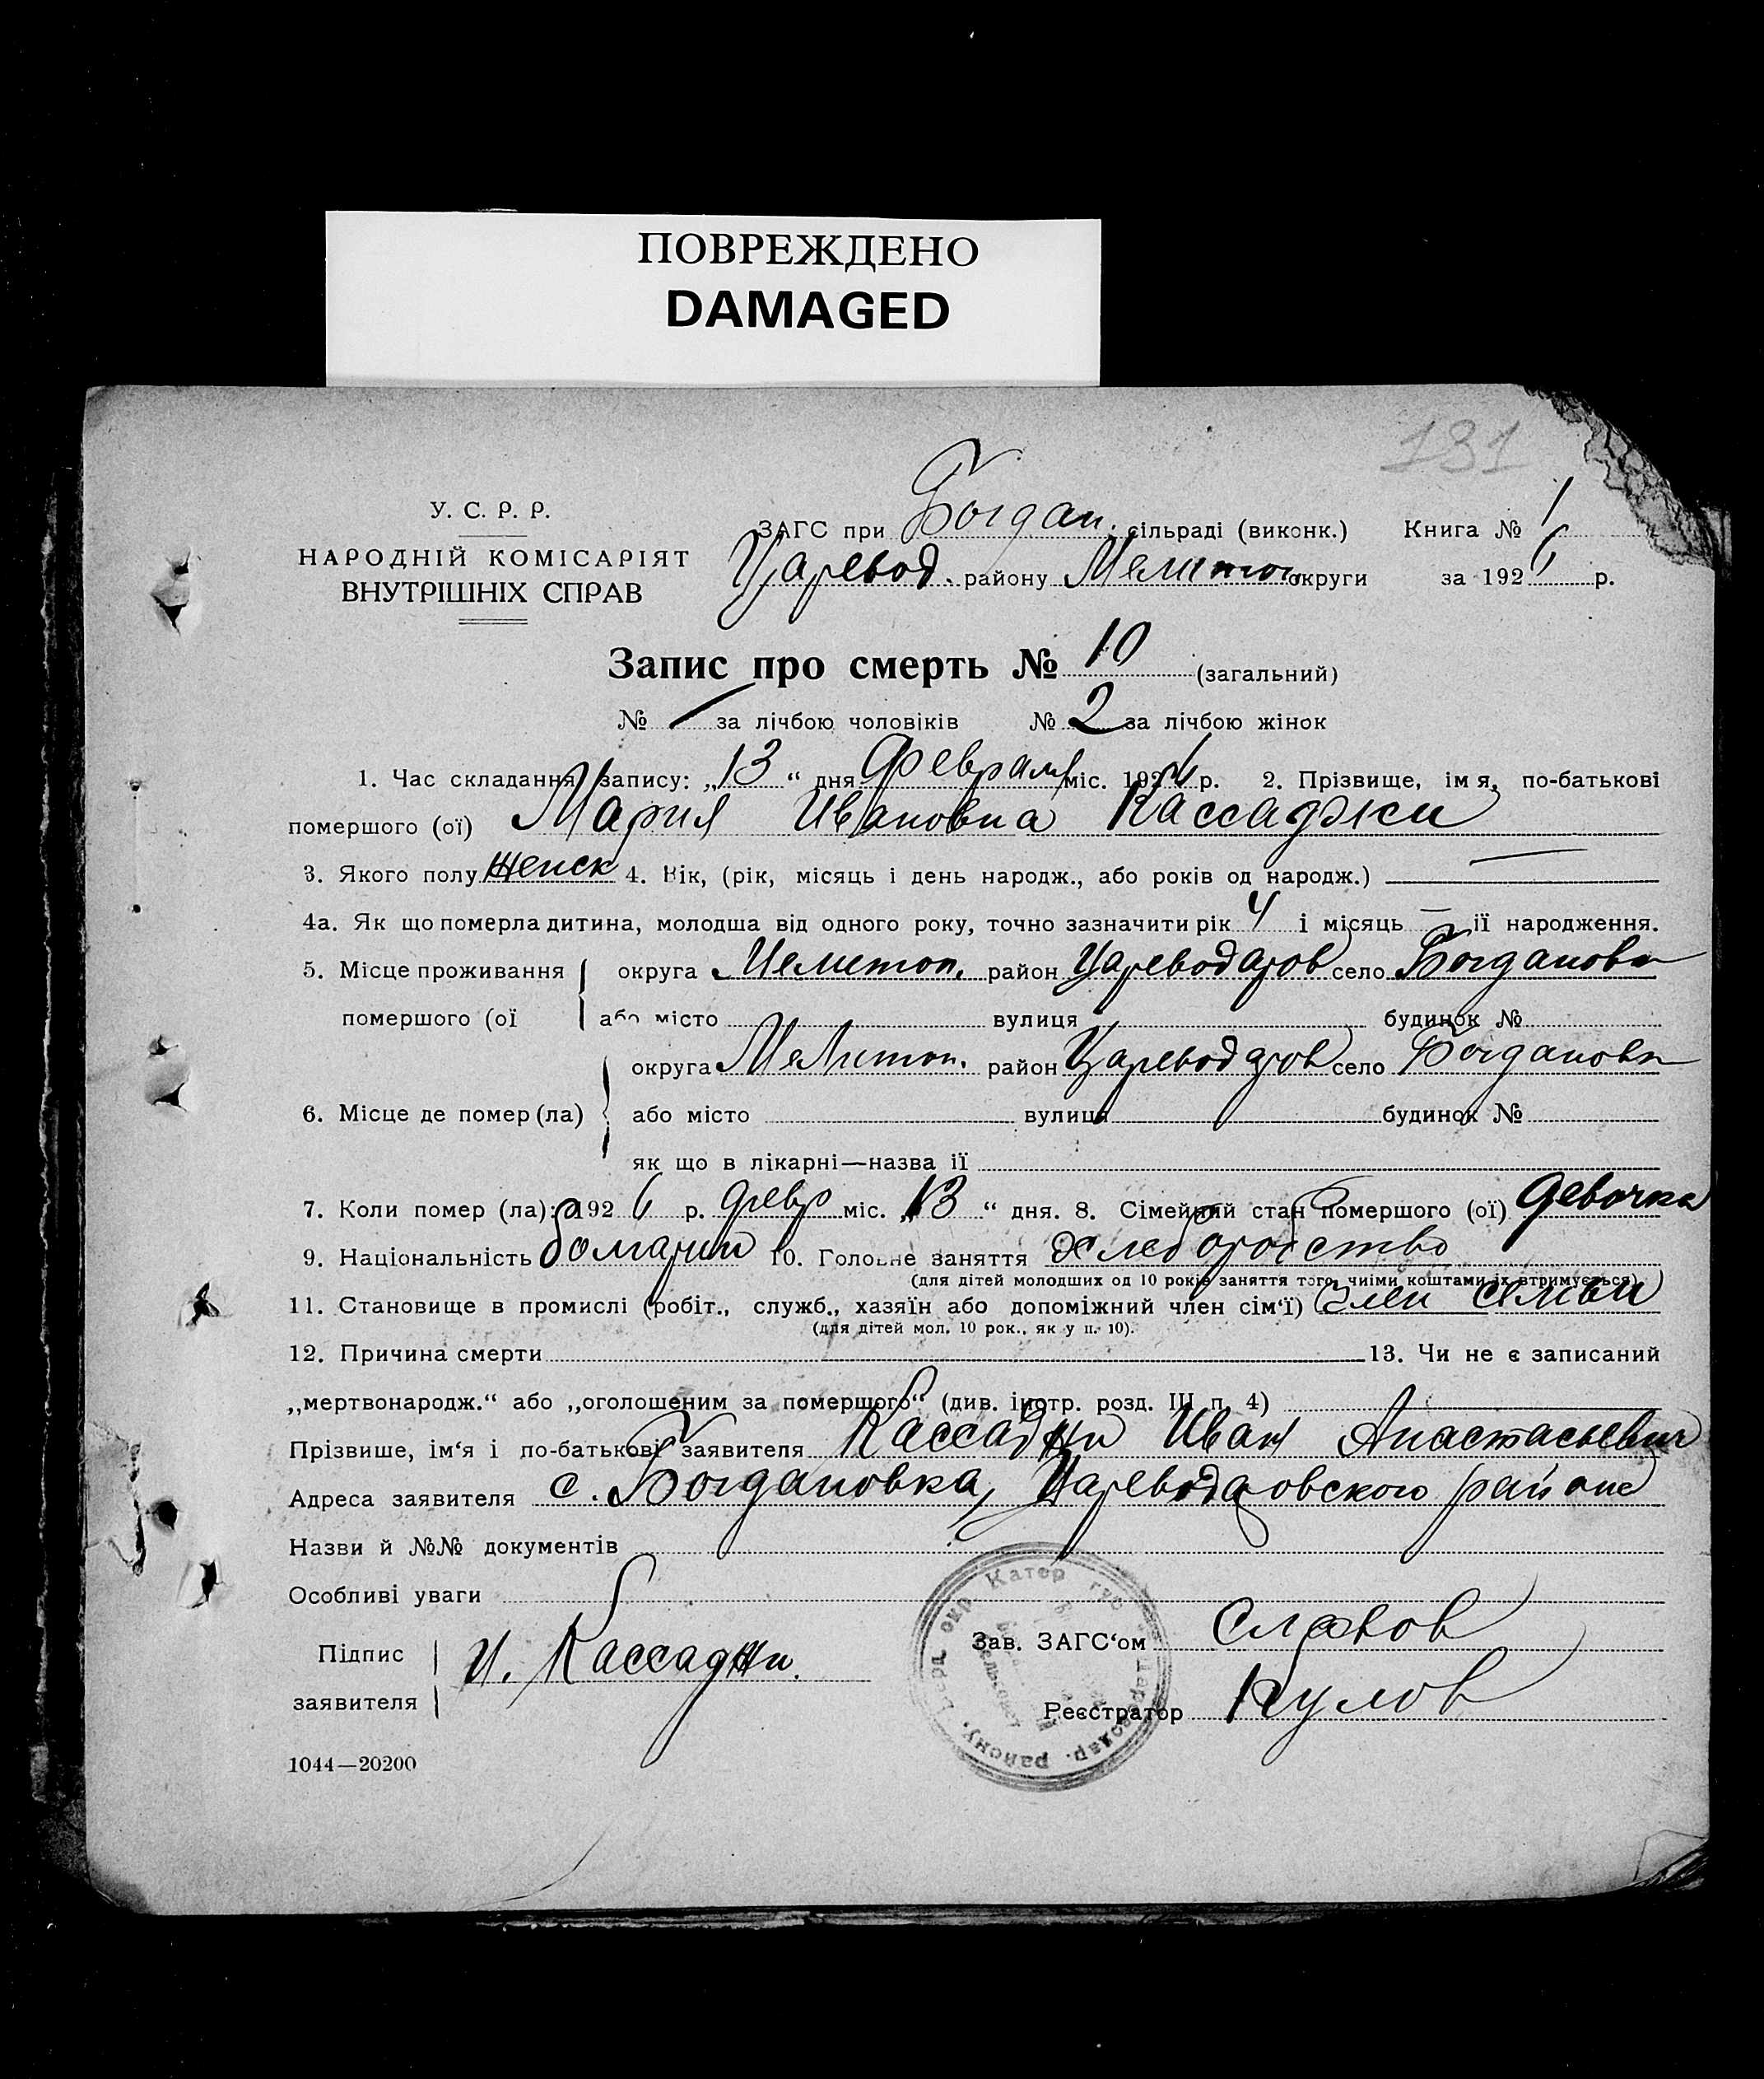 ПОВРЕЖДЕНО
DAMAGED
131
У. С. Р. Р.
НАРОДНІЙ КОМІСАРІЯТ
ВНУТРІШНІХ СПРАВ
ЗАГС при Богдан. сільраді (виконк.) Книга № 1
Царевод. району Мелитоп округи за 1926 р.
Запис про смерть № 10 (загальний)
№ — за лічбою чоловіків № 2 за лічбою жінок
1. Час складання запису: „13“ дня Февраля міс. 1926 р. 2. Прізвище, імя, по-батькові
помершого (ої) Мария Ивановна Кассаджи
3. Якого полу Женск 4. Вік, (рік, місяць і день народж., або років од народж.) —
4а. Як що померла дитина, молодша від одного року, точно зазначити рік 4 і місяць — її народження.
5. Місце проживання округа Мелитоп. район Цареводаров село Богдановк
помершого (ої або місто вулиця будинок №
округа Мелитоп. район Цареводаров село Богдановк
6. Місце де помер (ла) або місто вулиця будинок №
як що в лікарні—назва її
7. Коли помер (ла): 1926 р. февр міс. „13“ дня. 8. Сімейний стан помершого (ої) девочка
9. Національність болгарин 10. Головне заняття хлеборобство
(для дітей молодших од 10 років заняття того, чиїми коштами їх втримується)
11. Становище в промислі (робіт., служб., хазяїн або допоміжний член сім‘ї) Член семьи
(для дітей мол. 10 рок., як у п. 10).
12. Причина смерти 13. Чи не є записаний
„мертвонародж.“ або „оголошеним за помершого“ (див. інстр. розд. III п. 4)
Прізвише, ім‘я і по-батькові заявителя Кассаджи Иван Анастасьевич
Адреса заявителя с. Богдановка, Цареводаровского района
Назви й №№ документів
Особливі уваги
Підпис
заявителя
И. Кассаджи.
Зав. ЗАГС‘ом Славов
Реєстратор Кулов
Катер губ Цареводар. району, Берд окр
1044—20200